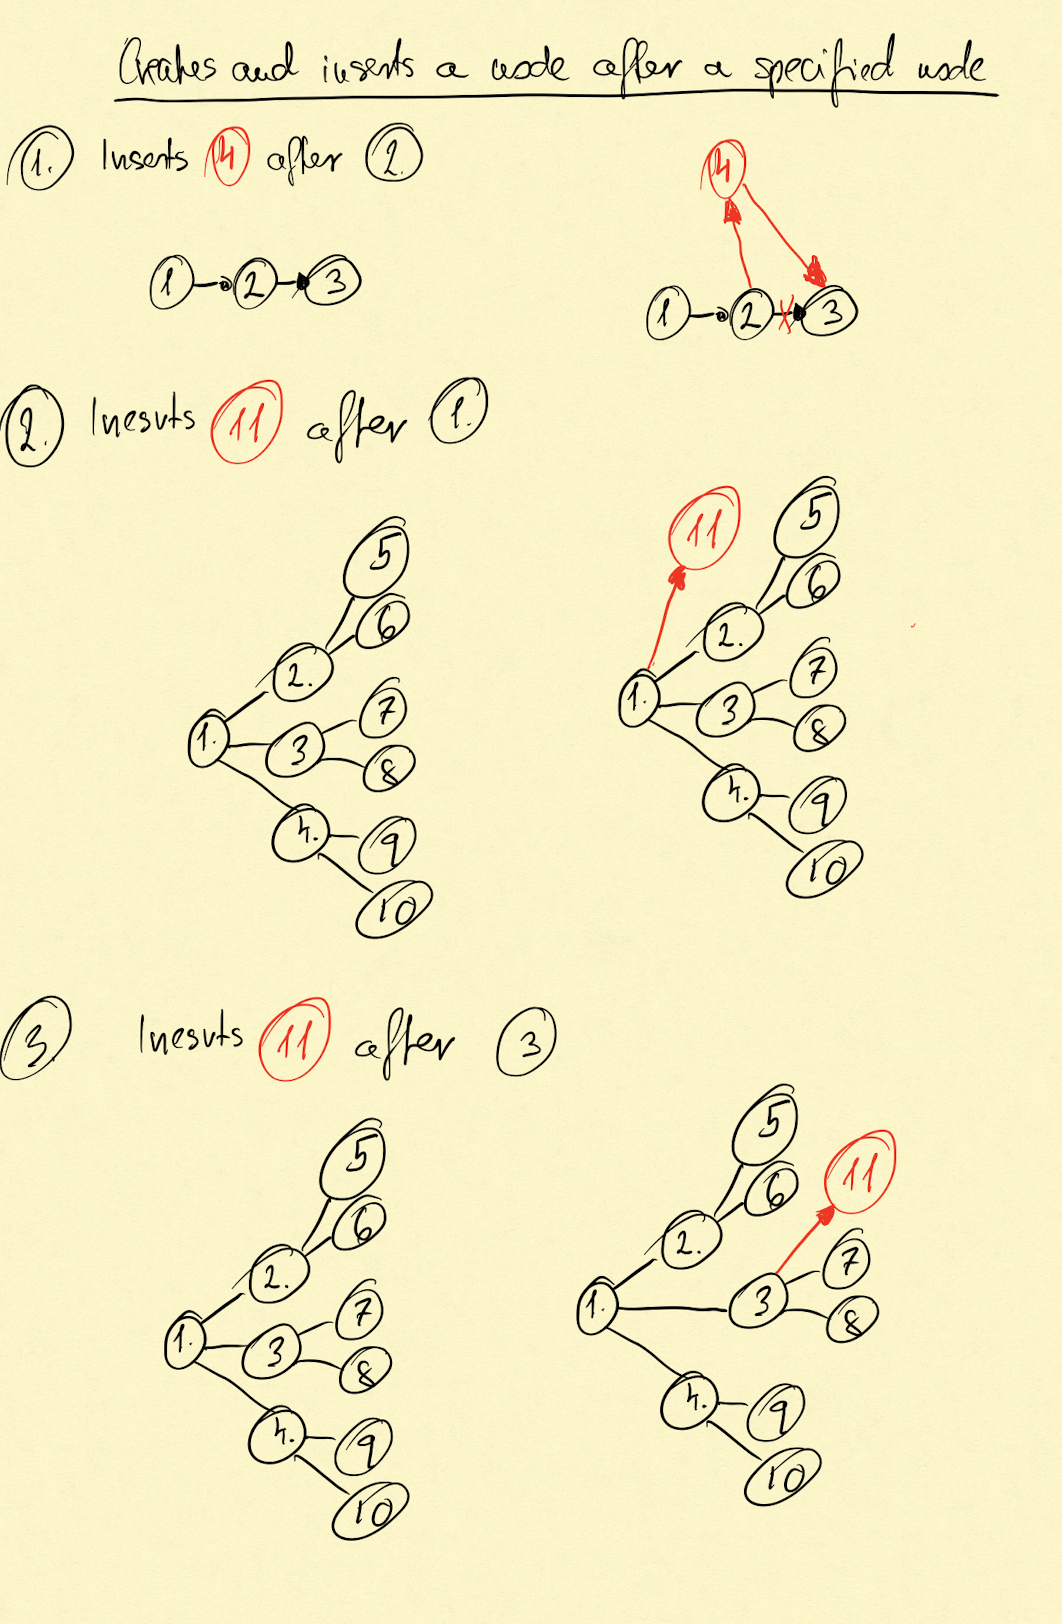 Creates and inserts a node after a specified node
1. Inserts 4 after 2.
4
1 2 3
1 2 x 3
2. Inesvts 11 after 1.
5
6
2.
7
1. 3
8
4. 9
10
11 5
6
2.
7
1. 3
8
4. 9
10
3 Inesvts 11 after 3
5
6
2.
7
1. 3
8
4. 9
10
5
11
6
2.
7
1. 3
8
4. 9
10